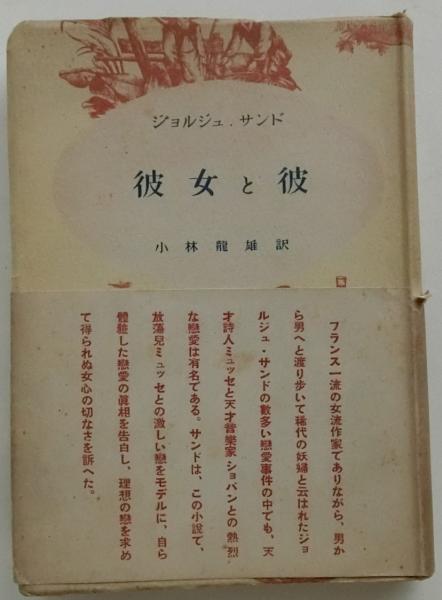 ジョルジュ．サンド
彼女と彼
小林龍雄訳
フランス一流の女流作家でありながら、男か
ら男へと渡り歩いて稀代の妖婦と云はれたジョ
ルジュ・サンドの數多い戀愛事件の中でも、天
才詩人ミュッセと天才音樂家ショパンとの熱烈
な戀愛は有名である。サンドは、この小説で、
放蕩兒ミュッセとの激しい戀をモデルに、自ら
體驗した戀愛の眞相を告白し、理想の戀を求め
て得られぬ女心の切なさを訴へた。